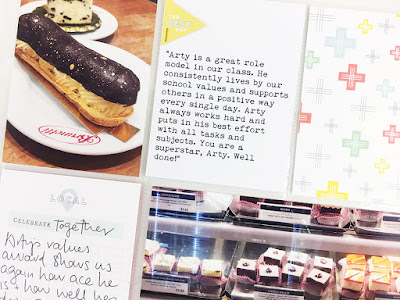 THE
BEST
DAY
"Arty is a great role
model in our class. He
consistently lives by our
school values and supports
others in a positive way
every single day. Arty
always works hard and
puts in his best effort
with all tasks and
subjects. You are a
superstar, Arty. Well
done!"
LOCAL
CELEBRATE Together
Arty's values
award shows us
again how ace he
is & how well he's